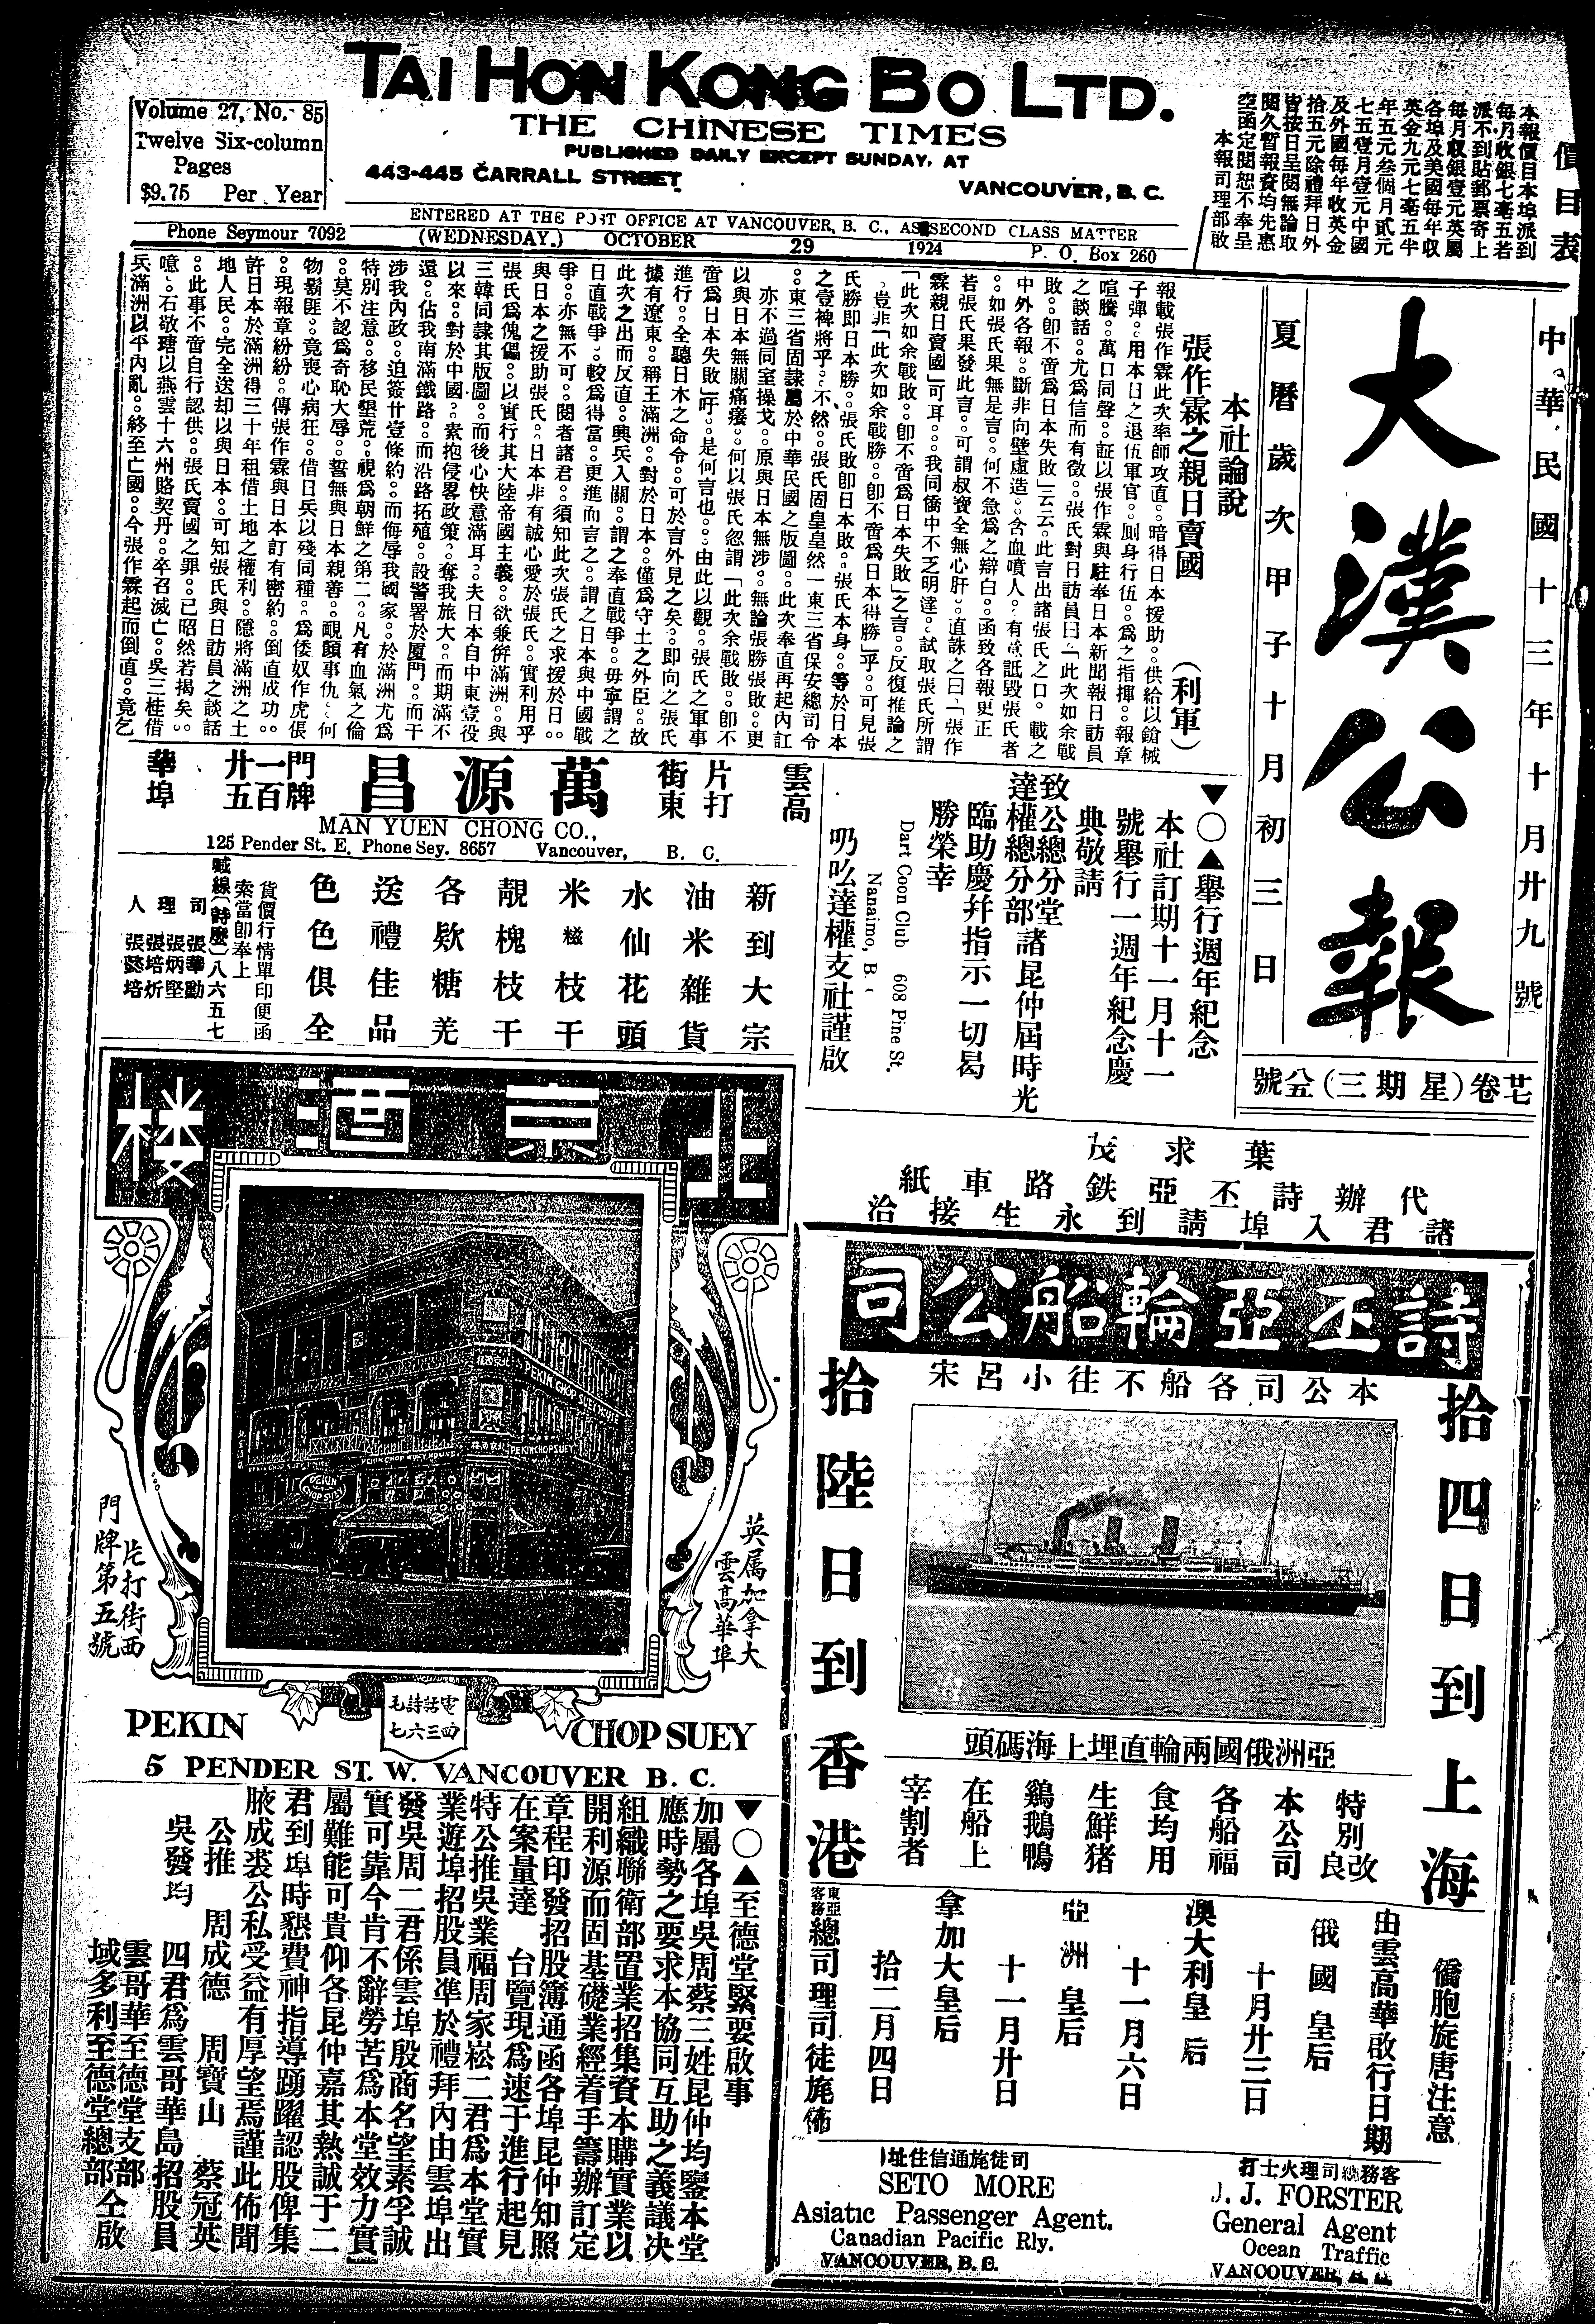 TAI HON KONG BO LTD.
THE CHINESE TIMES
PUBLISHED DAILY EXCEPT SUNDAY, AT
443-445 CARRALL STREET
VANCOUVER, B. C.
Volume 27, No. 85
Twelve Six-column
Pages
$9.75 Per Year
ENTERED AT THE POST OFFICE AT VANCOUVER, B. C., AS SECOND CLASS MATTER
Phone Seymour 7092
(WEDNESDAY.) OCTOBER 29 1924
P. O. Box 260
價目表
本報價目本埠派到
每月收銀七毫五若
派不到貼郵票寄上
每月收銀壹元英屬
各埠及美國每年收
英金九元七毫五半
年五元叁個月貳元
七五壹月壹元中國
及外國每年收英金
拾五元除禮拜日外
皆按日呈閱無論取
閱久暫報資均先惠
空函定閱恕不奉呈
本報司理部啟
中華民國十三年十月廿九號
大漢公報
夏曆歲次甲子十月初三日
廿七卷(星期三)八五號
本社論說
張作霖之親日賣國
(利軍)
報載張作霖此次率師攻直。暗得日本援助。供給以鎗械
子彈。用本日之退伍軍官。厠身行伍。爲之指揮。報章
喧騰。萬口同聲。証以張作霖與駐奉日本新聞報日訪員
之談話。尤爲信而有徵。張氏對日訪員曰「此次如余戰
敗。卽不啻爲日本失敗」云云。此言出諸張氏之口。載之
中外各報。斷非向壁虛造。含血噴人。有意詆毀張氏者
。如張氏果無是言。何不急爲之辯白。函致各報更正
若張氏果發此言。可謂叔寶全無心肝。直誅之曰「張作
霖親日賣國」可耳。我同僑中不乏明達。試取張氏所謂
「此次如余戰敗。卽不啻爲日本失敗」之言。反復推論之
。豈非「此次如余戰勝。卽不啻爲日本得勝」乎。可見張
氏勝即日本勝。張氏敗卽日本敗。張氏本身。等於日本
之壹裨將乎。不然。張氏固皇皇然一東三省保安總司令
。東三省固隷屬於中華民國之版圖。此次奉直再起內訌
亦不過同室操戈。原與日本無涉。無論張勝張敗。更
以與日本無關痛癢。何以張氏忽謂「此次余戰敗。卽不
啻爲日本失敗」吁。是何言也。由此以觀。張氏之軍事
進行。全聽日木之命令。可於言外見之矣。即向之張氏
據有遼東。稱王滿洲。對於日本。僅爲守土之外臣。故
此次之出而反直。興兵入關。謂之奉直戰爭。毋寧謂之
日直戰爭。較爲得當。更進而言之。謂之日本與中國戰
爭。亦無不可。閱者諸君。須知此次張氏之求援於日。
與日本之援助張氏。日本非有誠心愛於張氏。實利用乎
張氏爲傀儡。以實行其大陸帝國主義。欲兼併滿洲。與
三韓同隷其版圖。而後心快意滿耳。夫日本自中東壹役
以來。對於中國。素抱侵畧政策。奪我旅大。而期滿不
還。佔我南滿鐵路。而沿路拓殖。設警署於厦門。而干
涉我內政。迫簽廿壹條約。而侮辱我國家。於滿洲尤爲
特別注意。移民墾荒。視爲朝鮮之第二。凡有血氣之倫
。莫不認爲奇恥大辱。誓無與日本親善。覥顏事仇。何
物鬍匪。竟喪心病狂。借日兵以殘同種。爲倭奴作虎張
。現報章紛紛。傳張作霖與日本訂有密約。倒直成功。
許日本於滿洲得三十年租借土地之權利。隱將滿洲之土
地人民。完全送却以與日本。可知張氏與日訪員之談話
。此事不啻自行認供。張氏賣國之罪。已昭然若揭矣。
噫。石敬瑭以燕雲十六州賂契丹。卒召滅亡。吳三桂借
兵滿洲以平內亂。終至亡國。今張作霖起而倒直。竟乞
▼○▲舉行週年紀念
本社訂期十一月十一
號舉行一週年紀念慶
典敬請
致公總分堂
達權總分部 諸昆仲屆時光
臨助慶幷指示一切曷
勝榮幸
Dart Coon Club 608 Pine St.
Nanaimo, B.
叨吆達權支社謹啟
雲高華埠
片打街東
萬源昌
門牌一百廿五
MAN YUEN CHONG CO.,
125 Pender St. E. Phone Sey. 8657 Vancouver, B. C.
新到大宗
油米雜貨
水仙花頭
米枝干
靚槐枝干
各欵糖羌
送禮佳品
色色俱全
貨價行情單印便函
索當卽奉上
喊線(詩麽)八六五七
司理人
張華勳
張炳堅
張培炘
張懿培
葉求茂
代辦詩丕亞鉄路車紙
諸君入埠請到永生接洽
北京酒楼
PEKIN CHOP SUEY
英属加拿大
雲高華埠
片打街西
門牌第五號
電話詩毛
四三六七
PEKIN CHOP SUEY
5 PENDER ST. W. VANCOUVER B. C.
詩丕亞輪船公司
本公司各船不往小呂宋
拾四日到上海
拾陸日到香港
亞洲俄國兩輪直埋上海碼頭
特別改良
本公司
各船福
食均用
生鮮猪
鷄鵝鴨
在船上
宰割者
僑胞旋唐注意
由雲高華啟行日期
俄國皇后
十月廿三日
澳大利皇后
十一月六日
亞洲皇后
十一月廿日
拿加大皇后
拾二月四日
東亞客務總司理司徒旄佈
客務總司理火士打
J. J. FORSTER
General Agent
Ocean Traffic
VANCOUVER,
司徒旄通信住址
SETO MORE
Asiatic Passenger Agent.
Canadian Pacific Rly.
VANCOUVER, B. C.
▼○▲至德堂緊要啟事
加屬各埠吳周蔡三姓昆仲均鑒本堂
應時勢之要求本協同互助之義議决
組織聯衛部置業招集資本購實業以
開利源而固基礎業經着手籌辦訂定
章程印發招股簿通函各埠昆仲知照
在案量達 台覽現爲速于進行起見
特公推吳業福周家崧二君爲本堂實
業遊埠招股員準於禮拜內由雲埠出
發吳周二君係雲埠殷商名望素孚誠
實可靠今肯不辭勞苦爲本堂效力實
屬難能可貴仰各昆仲嘉其熱誠于二
君到埠時懇費神指導踴躍認股俾集
腋成裘公私受益有厚望焉謹此佈聞
公推 周成德 周寶山 蔡冠英
吳發均 四君爲雲哥華島招股員
雲哥華至德堂支部
域多利至德堂總部仝啟